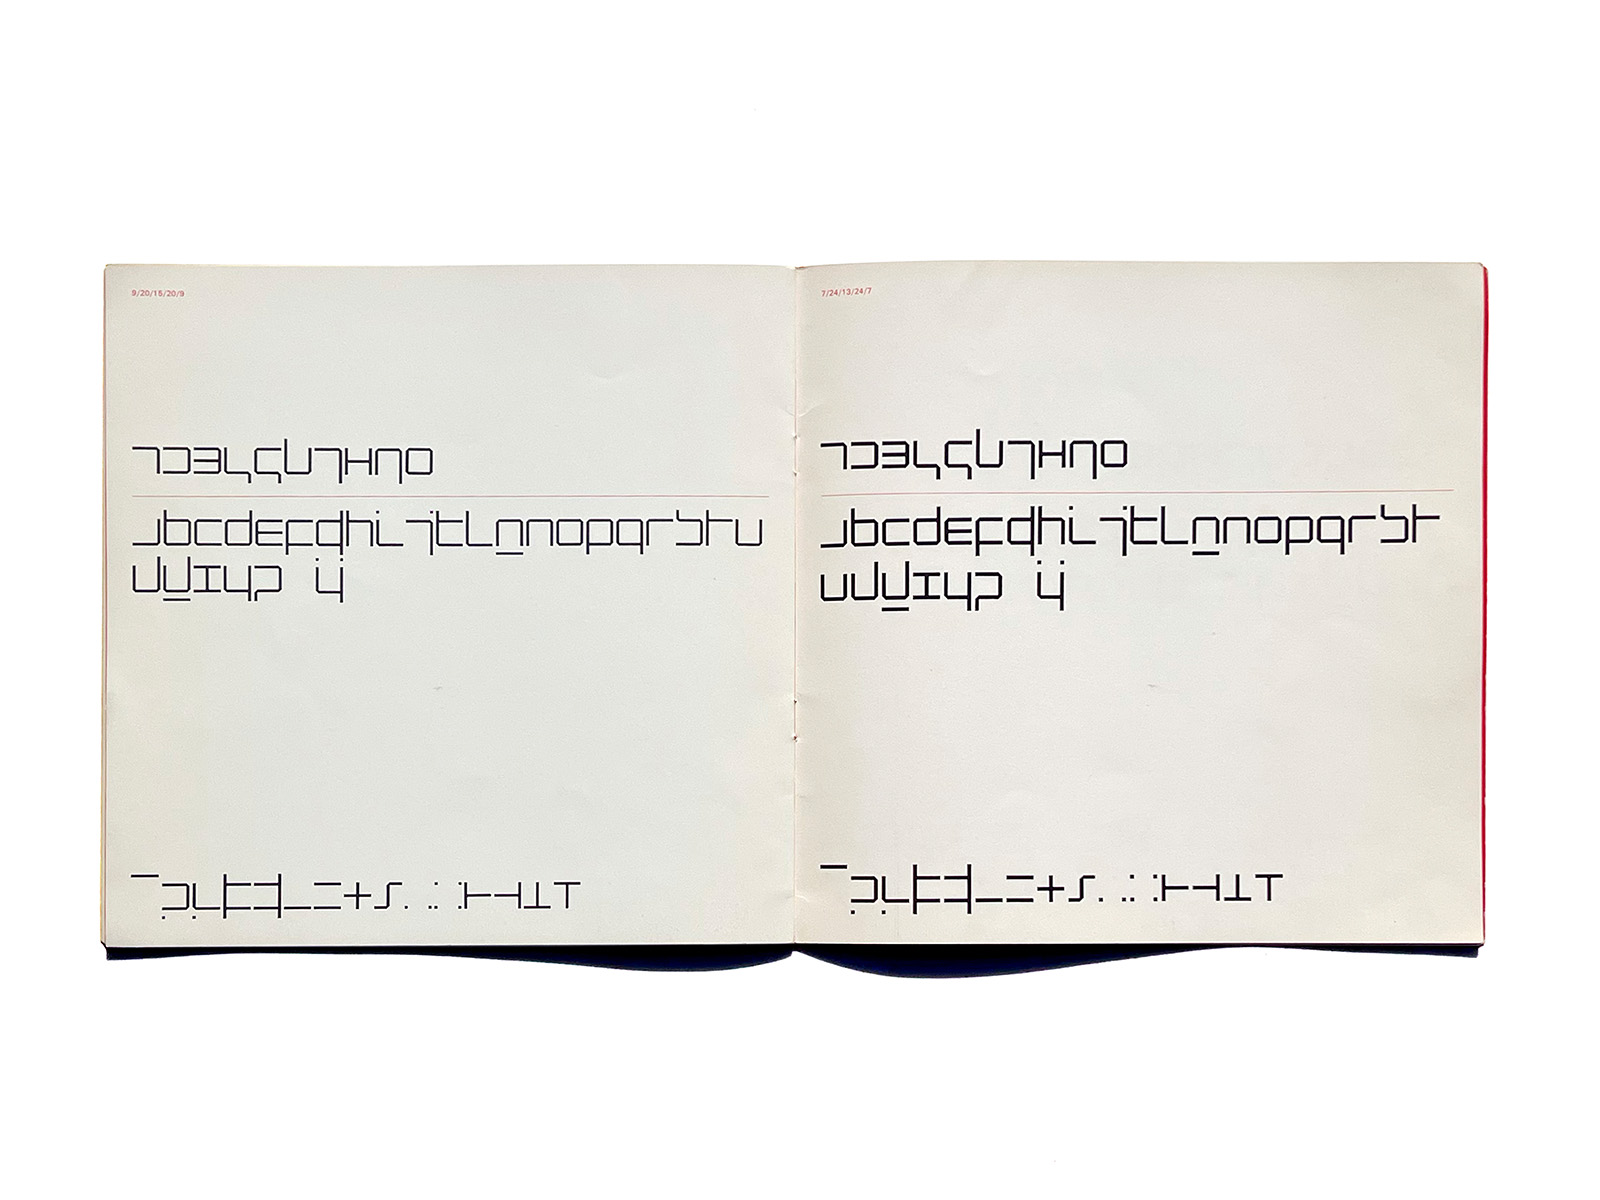 9/20/15/20/9
1234567890
abcdefghijklmnopqrstu
vwxyz ij
7/24/13/24/7
1234567890
abcdefghijklmnopqrst
uvwxyz ij